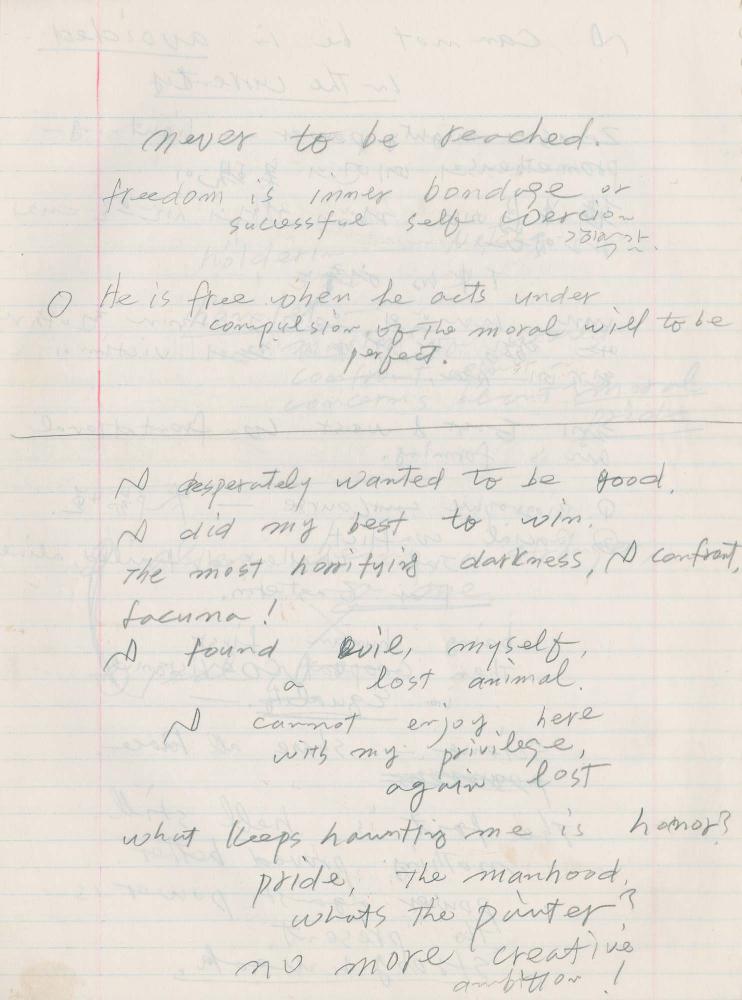 never to be reached.
freedom is inner bondage or
sucessful self coercion
O He is free when he acts under
compulsion of the moral will to be
perfect.
I desperately wanted to be good.
I did my best to win.
The most horrifying darkness, I confront,
lacuna!
I found evil, myself,
a lost animal.
I cannot enjoy here
with my privilege,
again lost
what keeps haunting me is honor?
pride, the manhood,
whats the painter?
no more creative
ambition!